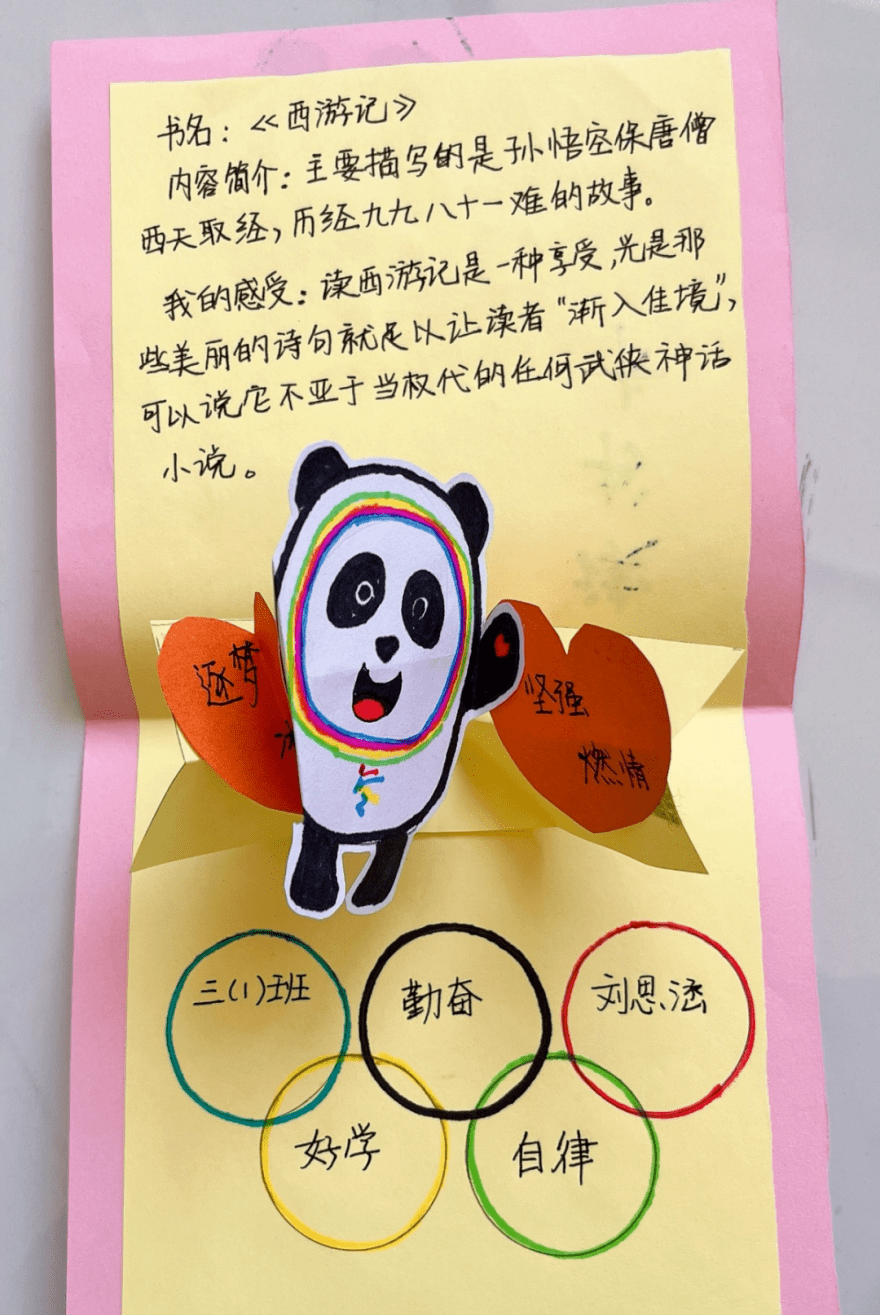 书名：《西游记》
内容简介：主要描写的是孙悟空保唐僧
西天取经，历经九九八十一难的故事。
我的感受：读西游记是一种享受，光是那
些美丽的诗句就足以让读者“渐入佳境”，
可以说它不亚于当权代的任何武侠神话
小说。
逐梦
坚强
燃情
三(1)班
勤奋
刘思涵
好学
自律